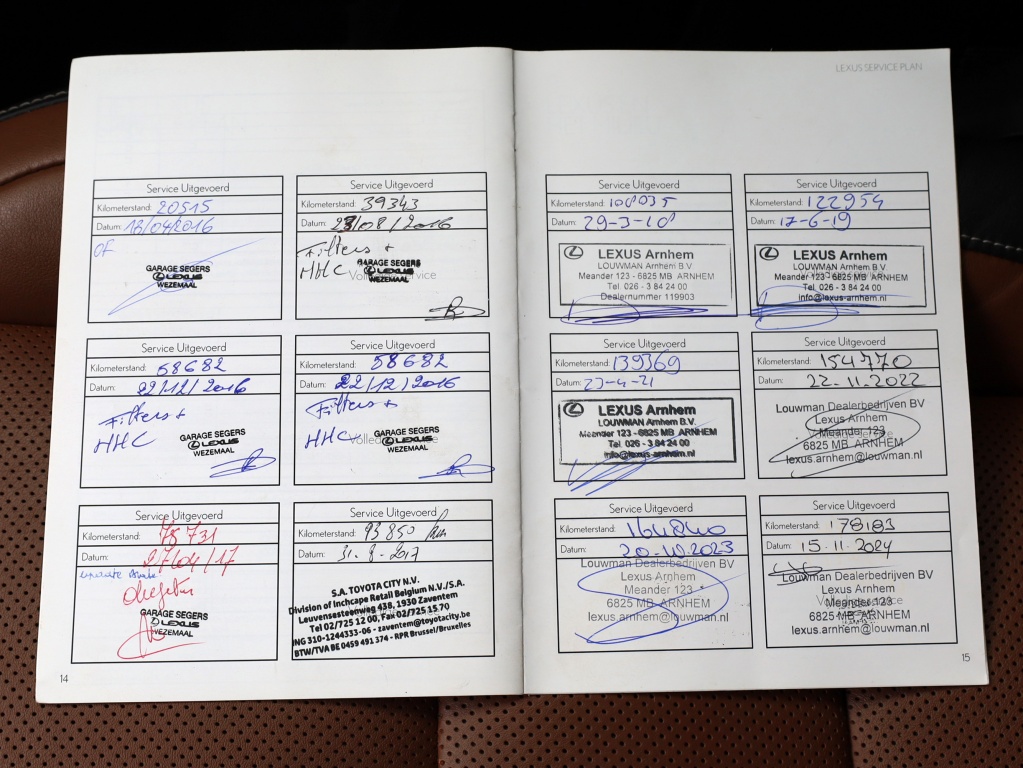 LEXUS SERVICE PLAN
Service Uitgevoerd
Kilometerstand: 20515
Datum: 18/04/2016
OF
GARAGE SEGERS
LEXUS
WEZEMAAL
Service Uitgevoerd
Kilometerstand: 39343
Datum: 23/08/2016
Filters +
HHC
GARAGE SEGERS
LEXUS
WEZEMAAL
Service Uitgevoerd
Kilometerstand: 58682
Datum: 22/12/2016
Filters +
HHC
GARAGE SEGERS
LEXUS
WEZEMAAL
Service Uitgevoerd
Kilometerstand: 58682
Datum: 22/12/2016
Filters +
HHC
GARAGE SEGERS
LEXUS
WEZEMAAL
Service Uitgevoerd
Kilometerstand: 78731
Datum: 27/04/17
GARAGE SEGERS
LEXUS
WEZEMAAL
Service Uitgevoerd
Kilometerstand: 93850 km
Datum: 31-8-2017
S.A. TOYOTA CITY N.V.
Division of Inchcape Retail Belgium N.V./S.A.
Leuvensesteenweg 438, 1930 Zaventem
Tel 02/725 12 00, Fax 02/725 15 70
ING 310-1244333-06 - zaventem@toyotacity.be
BTW/TVA BE 0459 491 374 - RPR Brussel/Bruxelles
14
Service Uitgevoerd
Kilometerstand: 108035
Datum: 29-3-18
LEXUS Arnhem
LOUWMAN Arnhem B.V.
Meander 123 - 6825 MB ARNHEM
Tel. 026 - 3 84 24 00
Dealernummer 119903
Service Uitgevoerd
Kilometerstand: 122954
Datum: 17-6-19
LEXUS Arnhem
LOUWMAN Arnhem B.V.
Meander 123 - 6825 MB ARNHEM
Tel. 026 - 3 84 24 00
info@lexus-arnhem.nl
Service Uitgevoerd
Kilometerstand: 139369
Datum: 23-4-21
LEXUS Arnhem
LOUWMAN Arnhem B.V.
Meander 123 - 6825 MB ARNHEM
Tel. 026 - 3 84 24 00
info@lexus-arnhem.nl
Service Uitgevoerd
Kilometerstand: 154770
Datum: 22-11-2022
Louwman Dealerbedrijven BV
Lexus Arnhem
Meander 123
6825 MB ARNHEM
lexus.arnhem@louwman.nl
Service Uitgevoerd
Kilometerstand: 164840
Datum: 20-10-2023
Louwman Dealerbedrijven BV
Lexus Arnhem
Meander 123
6825 MB ARNHEM
lexus.arnhem@louwman.nl
Service Uitgevoerd
Kilometerstand: 178183
Datum: 15-11-2024
Louwman Dealerbedrijven BV
Lexus Arnhem
Meander 123
6825 MB ARNHEM
lexus.arnhem@louwman.nl
15